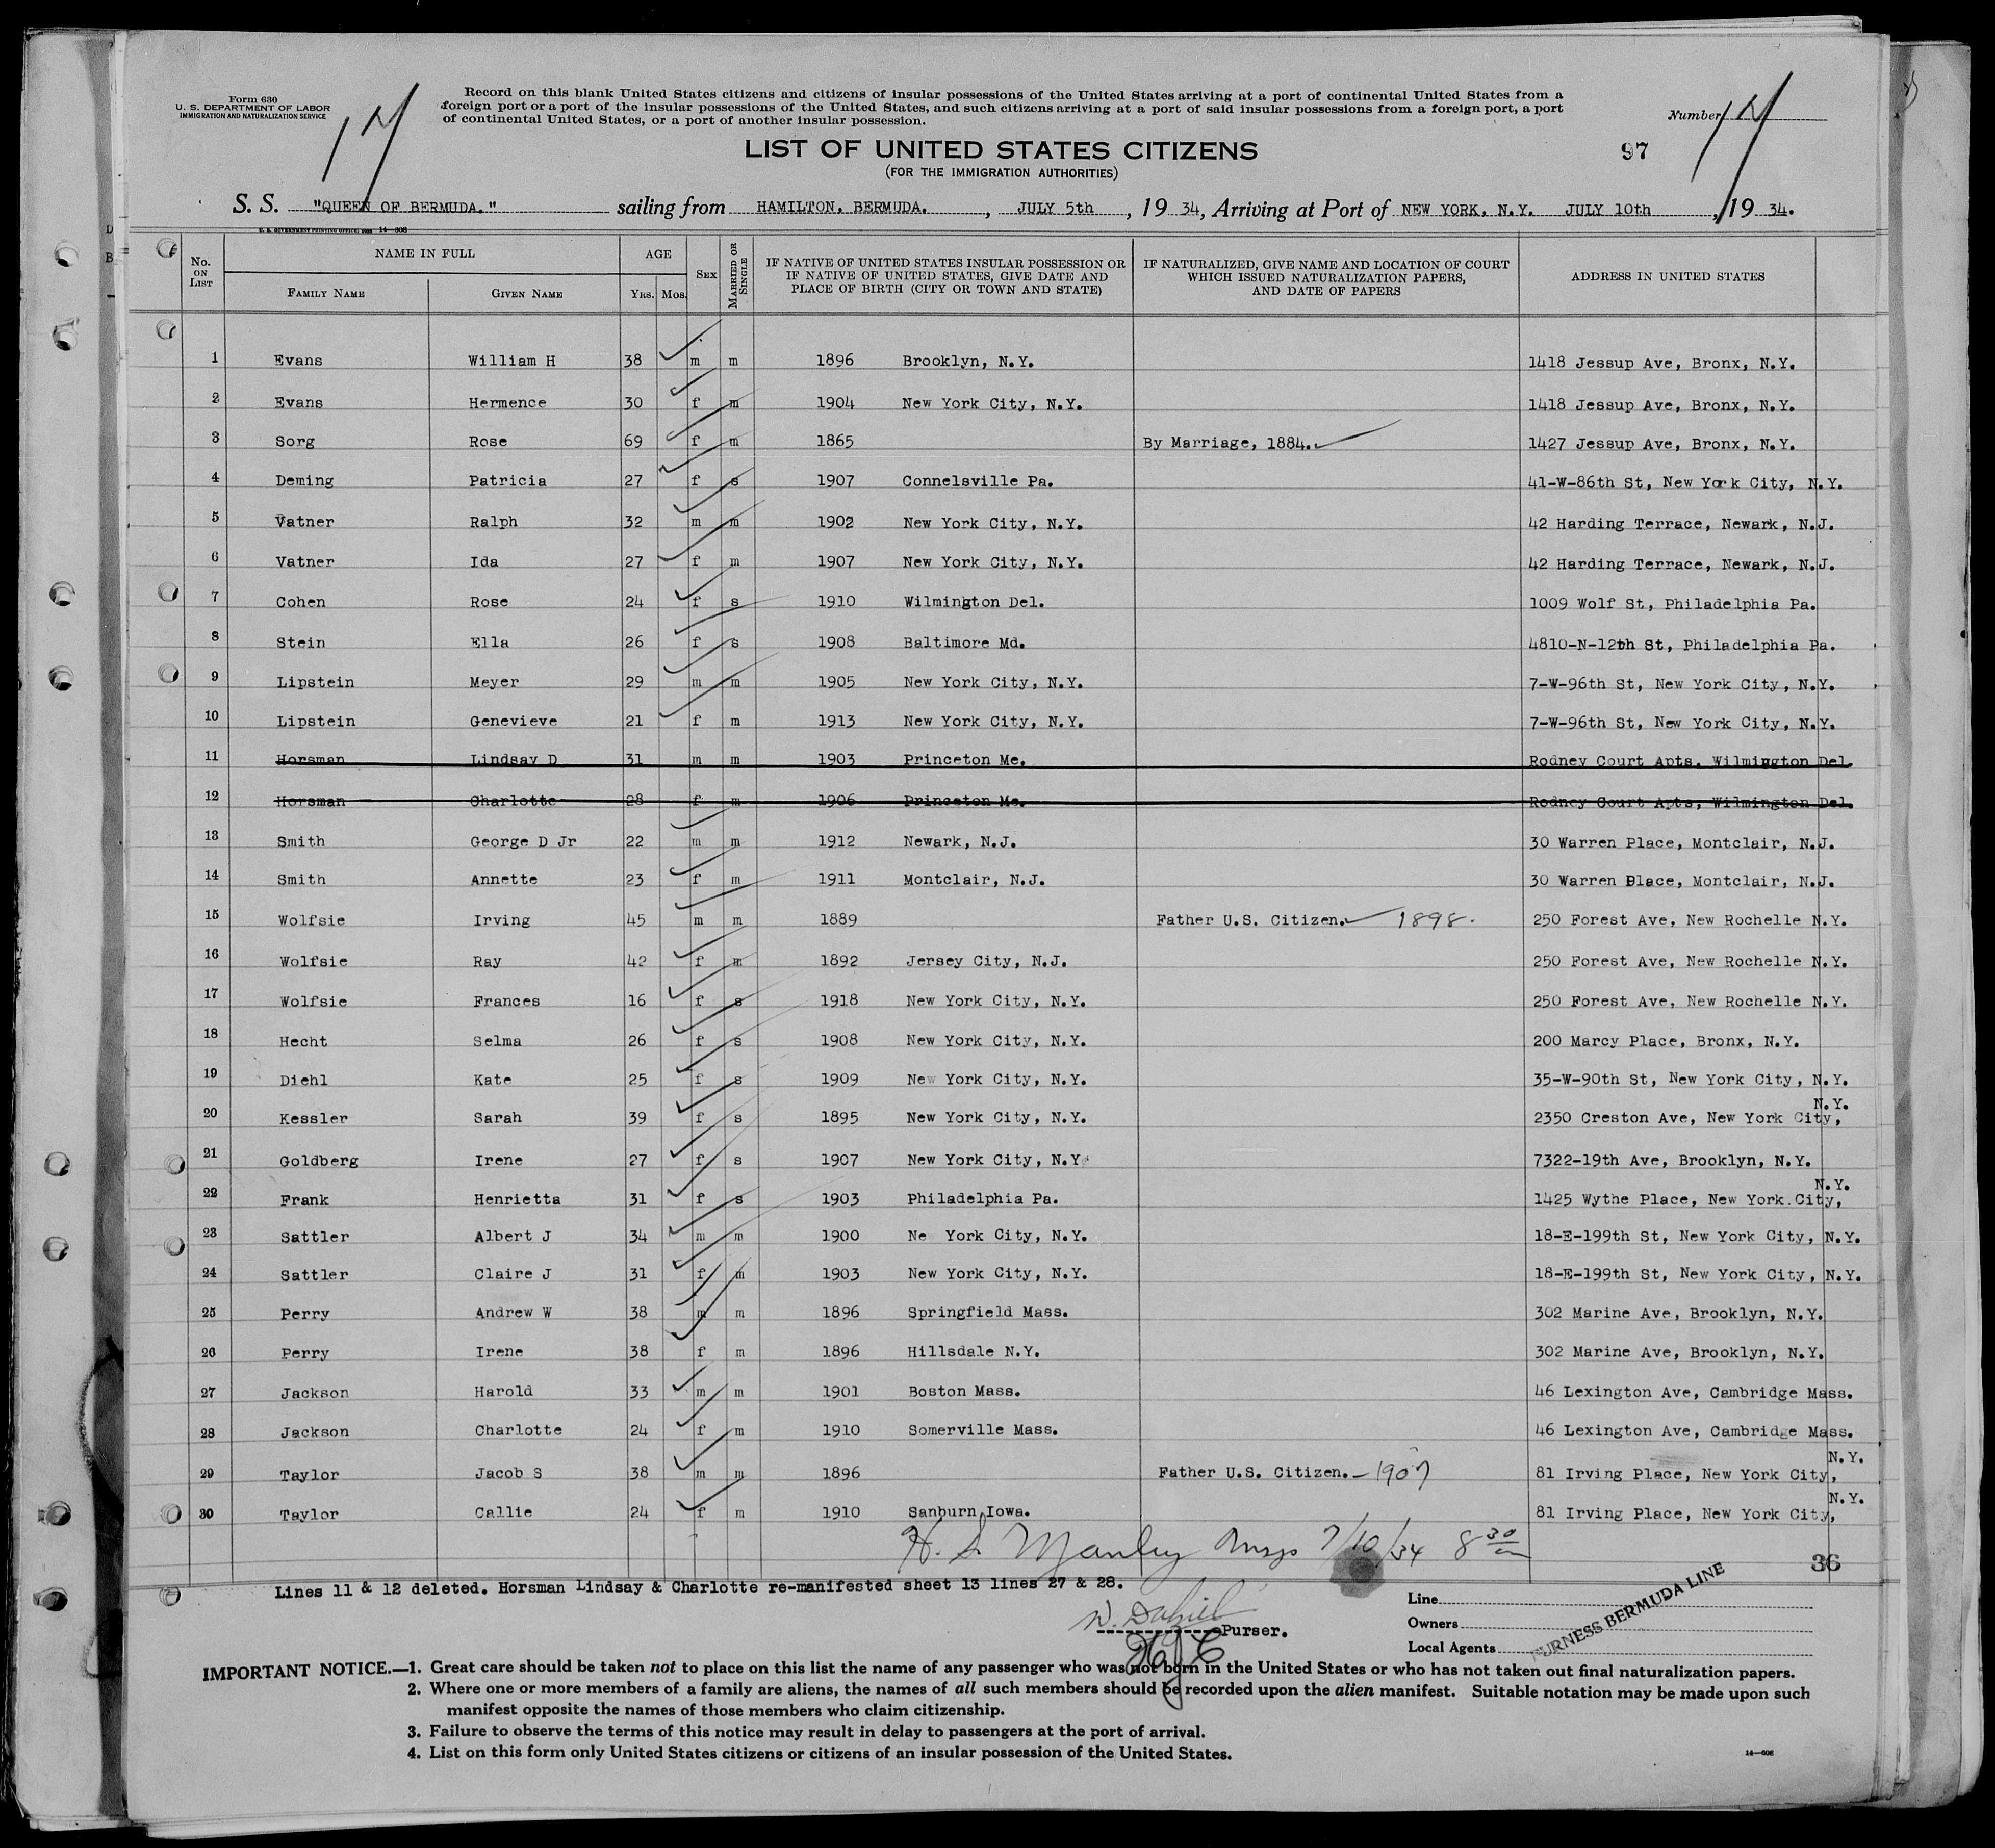 Form 630
U. S. DEPARTMENT OF LABOR
IMMIGRATION AND NATURALIZATION SERVICE
14
Record on this blank United States citizens and citizens of insular possessions of the United States arriving at a port of continental United States from a
foreign port or a port of the insular possessions of the United States, and such citizens arriving at a port of said insular possessions from a foreign port, a port
of continental United States, or a port of another insular possession.
Number 14
LIST OF UNITED STATES CITIZENS
97
(FOR THE IMMIGRATION AUTHORITIES)
S. S. "QUEEN OF BERMUDA." sailing from HAMILTON, BERMUDA. , JULY 5th , 19 34, Arriving at Port of NEW YORK, N.Y. JULY 10th , 19 34.
U. S. GOVERNMENT PRINTING OFFICE: 14—608
No. ON LIST NAME IN FULL AGE SEX MARRIED OR SINGLE IF NATIVE OF UNITED STATES INSULAR POSSESSION OR IF NATIVE OF UNITED STATES, GIVE DATE AND PLACE OF BIRTH (CITY OR TOWN AND STATE) IF NATURALIZED, GIVE NAME AND LOCATION OF COURT WHICH ISSUED NATURALIZATION PAPERS, AND DATE OF PAPERS ADDRESS IN UNITED STATES
FAMILY NAME GIVEN NAME YRS. MOS.
1 Evans William H 38 m m 1896 Brooklyn, N.Y. 1418 Jessup Ave, Bronx, N.Y.
2 Evans Hermence 30 f m 1904 New York City, N.Y. 1418 Jessup Ave, Bronx, N.Y.
3 Sorg Rose 69 f m 1865 By Marriage, 1884. 1427 Jessup Ave, Bronx, N.Y.
4 Deming Patricia 27 f s 1907 Connelsville Pa. 41-W-86th St, New York City, N.Y.
5 Vatner Ralph 32 m m 1902 New York City, N.Y. 42 Harding Terrace, Newark, N.J.
6 Vatner Ida 27 f m 1907 New York City, N.Y. 42 Harding Terrace, Newark, N.J.
7 Cohen Rose 24 f s 1910 Wilmington Del. 1009 Wolf St, Philadelphia Pa.
8 Stein Ella 26 f s 1908 Baltimore Md. 4810-N-12th St, Philadelphia Pa.
9 Lipstein Meyer 29 m m 1905 New York City, N.Y. 7-W-96th St, New York City, N.Y.
10 Lipstein Genevieve 21 f m 1913 New York City, N.Y. 7-W-96th St, New York City, N.Y.
11 Horsman Lindsay D 31 m m 1903 Princeton Me. Rodney Court Apts, Wilmington Del.
12 Horsman Charlotte 28 f m 1906 Princeton Me. Rodney Court Apts, Wilmington Del.
13 Smith George D Jr 22 m m 1912 Newark, N.J. 30 Warren Place, Montclair, N.J.
14 Smith Annette 23 f m 1911 Montclair, N.J. 30 Warren Blace, Montclair, N.J.
15 Wolfsie Irving 45 m m 1889 Father U.S. Citizen. 1898. 250 Forest Ave, New Rochelle N.Y.
16 Wolfsie Ray 42 f m 1892 Jersey City, N.J. 250 Forest Ave, New Rochelle N.Y.
17 Wolfsie Frances 16 f s 1918 New York City, N.Y. 250 Forest Ave, New Rochelle N.Y.
18 Hecht Selma 26 f s 1908 New York City, N.Y. 200 Marcy Place, Bronx, N.Y.
19 Diehl Kate 25 f s 1909 New York City, N.Y. 35-W-90th St, New York City, N.Y.
20 Kessler Sarah 39 f s 1895 New York City, N.Y. 2350 Creston Ave, New York City, N.Y.
21 Goldberg Irene 27 f s 1907 New York City, N.Y. 7322-19th Ave, Brooklyn, N.Y.
22 Frank Henrietta 31 f s 1903 Philadelphia Pa. 1425 Wythe Place, New York City, N.Y.
23 Sattler Albert J 34 m m 1900 Ne York City, N.Y. 18-E-199th St, New York City, N.Y.
24 Sattler Claire J 31 f m 1903 New York City, N.Y. 18-E-199th St, New York City, N.Y.
25 Perry Andrew W 38 m m 1896 Springfield Mass. 302 Marine Ave, Brooklyn, N.Y.
26 Perry Irene 38 f m 1896 Hillsdale N.Y. 302 Marine Ave, Brooklyn, N.Y.
27 Jackson Harold 33 m m 1901 Boston Mass. 46 Lexington Ave, Cambridge Mass.
28 Jackson Charlotte 24 f m 1910 Somerville Mass. 46 Lexington Ave, Cambridge Mass.
29 Taylor Jacob S 38 m m 1896 Father U.S. Citizen. — 1907 81 Irving Place, New York City, N.Y.
30 Taylor Callie 24 f m 1910 Sanburn Iowa. 81 Irving Place, New York City, N.Y.
H. S. Manley 7/10/34 8 30
36
Lines 11 & 12 deleted. Horsman Lindsay & Charlotte re-manifested sheet 13 lines 27 & 28.
Purser.
Line
Owners
Local Agents
FURNESS BERMUDA LINE
IMPORTANT NOTICE.—1. Great care should be taken not to place on this list the name of any passenger who was not born in the United States or who has not taken out final naturalization papers.
2. Where one or more members of a family are aliens, the names of all such members should be recorded upon the alien manifest. Suitable notation may be made upon such
manifest opposite the names of those members who claim citizenship.
3. Failure to observe the terms of this notice may result in delay to passengers at the port of arrival.
4. List on this form only United States citizens or citizens of an insular possession of the United States.
14—608